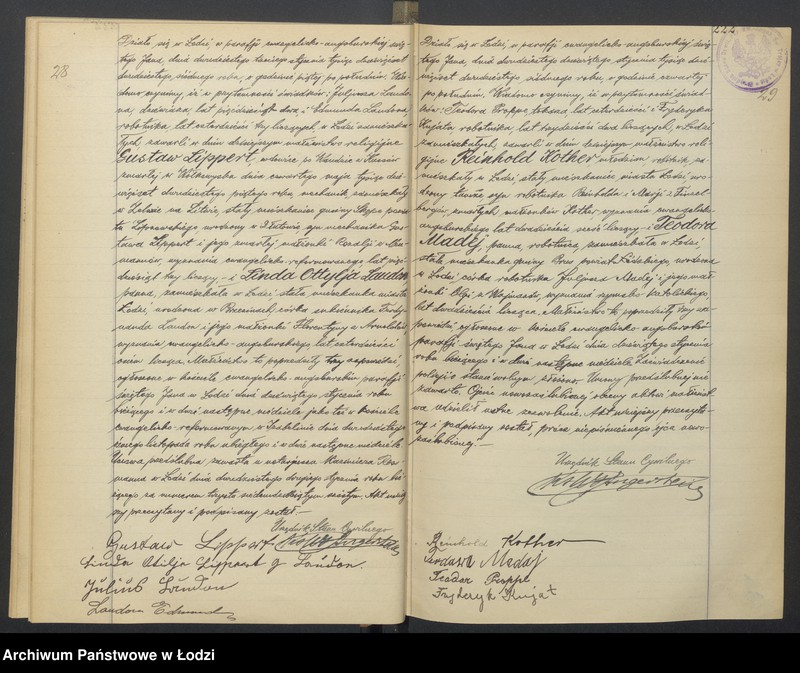 28
Działo się w Łodzi, w parafji ewangelicko-augsburskiej świę-
tego Jana, dnia dwudziestego trzeciego stycznia tysiąc dziewięćset
dwudziestego siódmego roku, o godzinie piątej po południu. Wia-
domo czynimy, iż w przytomności świadków: Juljusza Landau
lat pięćdziesiąt dwa i Edmunda Landona,
robotnika, lat czterdzieści trzy liczących, w Łodzi zamieszka-
łych, zawarli w dniu dzisiejszym małżeństwo religijne
Gustaw Lippert, wdowiec po Wandzie z
zmarłej w dnia czwartego maja tysiąc dzie-
więćset dwudziestego piątego roku, mechanik, zamieszkały
w na Litwie, stały mieszkaniec gminy powia-
tu urodzony w syn mechanika Gus-
tawa Lippert i jego zmarłej małżonki
wyznania ewangelicko-reformowanego, lat pięć-
dziesiąt trzy liczący – i Linda Ottylja Landon
panna, zamieszkała w Łodzi, stała mieszkanka miasta
Łodzi, urodzona w Brzezinach, córka sukiennika Ferdy-
nanda Landon i jego małżonki Florentyny z
wyznania ewangelicko-augsburskiego, lat czterdzieści
osiem licząca. Małżeństwo to poprzedziły trzy zapowiedzi
ogłoszone w kościele ewangelicko-augsburskim parafji
świętego Jana w Łodzi dnia dziewiątego stycznia roku
bieżącego i w dwie następne niedziele, jako też w kościele
ewangelicko-reformowanym w dnia dwudziestego
listopada roku ubiegłego i w dwie następne niedziele.
Umowa przedślubna zawarta u notarjusza Kazimierza
w Łodzi dnia dwudziestego drugiego stycznia roku bie-
żącego za numerem trzysta siedemdziesiątym szóstym. Akt niniej-
szy przeczytany i podpisany został.—
Urzędnik Stanu Cywilnego
Gustaw Lippert
Linda Otilja Lippert g Landon.
Julius Landon
Landon Edmund
222
29
Działo się w Łodzi, w parafji ewangelicko-augsburskiej świę-
tego Jana, dnia dwudziestego dziewiątego stycznia tysiąc dzie-
więćset dwudziestego siódmego roku o godzinie czwartej
po południu. Wiadomo czynimy, iż w przytomności świad-
ków: Teodora Proppe tkacza, lat czterdzieści i Fryderyka
Kujata robotnika, lat trzydzieści dwa liczących, w Łodzi
zamieszkałych, zawarli w dniu dzisiejszym małżeństwo reli-
gijne Reinhold Kother młodzian, robotnik, za-
mieszkały w Łodzi, stały mieszkaniec miasta Łodzi, uro-
dzony tamże, syn robotnika Reinholda i Marji z
zmarłych małżonków Kother, wyznania ewangelicko-
augsburskiego, lat dwadzieścia sześć liczący – i Teodora
Madej, panna, robotnica, zamieszkała w Łodzi,
stała mieszkanka gminy powiatu Łódzkiego, urodzona
w Łodzi, córka robotnika Juljana Madej i jego mał-
żonki Olgi z wyznania rzymsko-katolickiego,
lat dwadzieścia licząca. Małżeństwo to poprzedziły trzy za-
powiedzi ogłoszone w kościele ewangelicko-augsburskim
parafji świętego Jana w Łodzi dnia dziewiątego stycznia
roku bieżącego i w dwie następne niedziele.
Umowy przedślubnej nie
zawarto. Ojciec nowozaślubionej obecny aktowi małżeńst-
wa udzielił ustne zezwolenie. Akt niniejszy przeczyta-
ny i podpisany został, prócz niepiśmiennego ojca nowo-
zaślubionej.—
Urzędnik Stanu Cywilnego
Reinhold Kother
Teodora Madej
Teodor Proppe
Fryderyk Kujat
Archiwum Państwowe w Łodzi